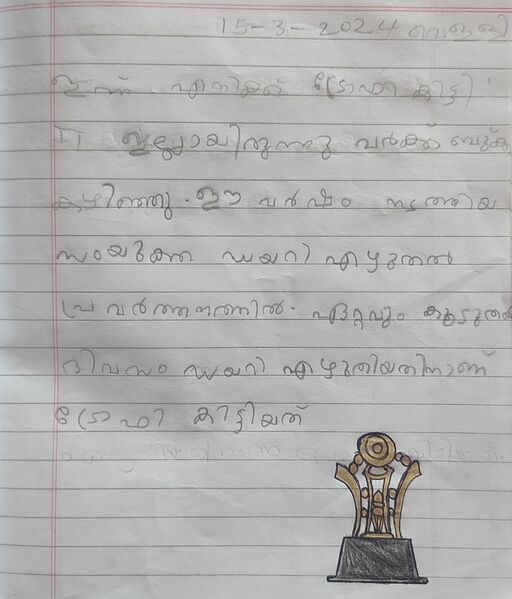 15-3-2024 വെള്ളി
ഇന്ന് എനിക്ക് ട്രോഫി കിട്ടി
IT ഇല്ലായിരുന്നു വർക്ക് ബുക്ക്
കഴിഞ്ഞു. ഈ വർഷം നടത്തിയ
സംയുക്ത ഡയറി എഴുതൽ
പ്രവർത്തനത്തിൽ. ഏറ്റവും കൂടുതൽ
ദിവസം ഡയറി എഴുതിയതിനാണ്
ട്രോഫി കിട്ടിയത്